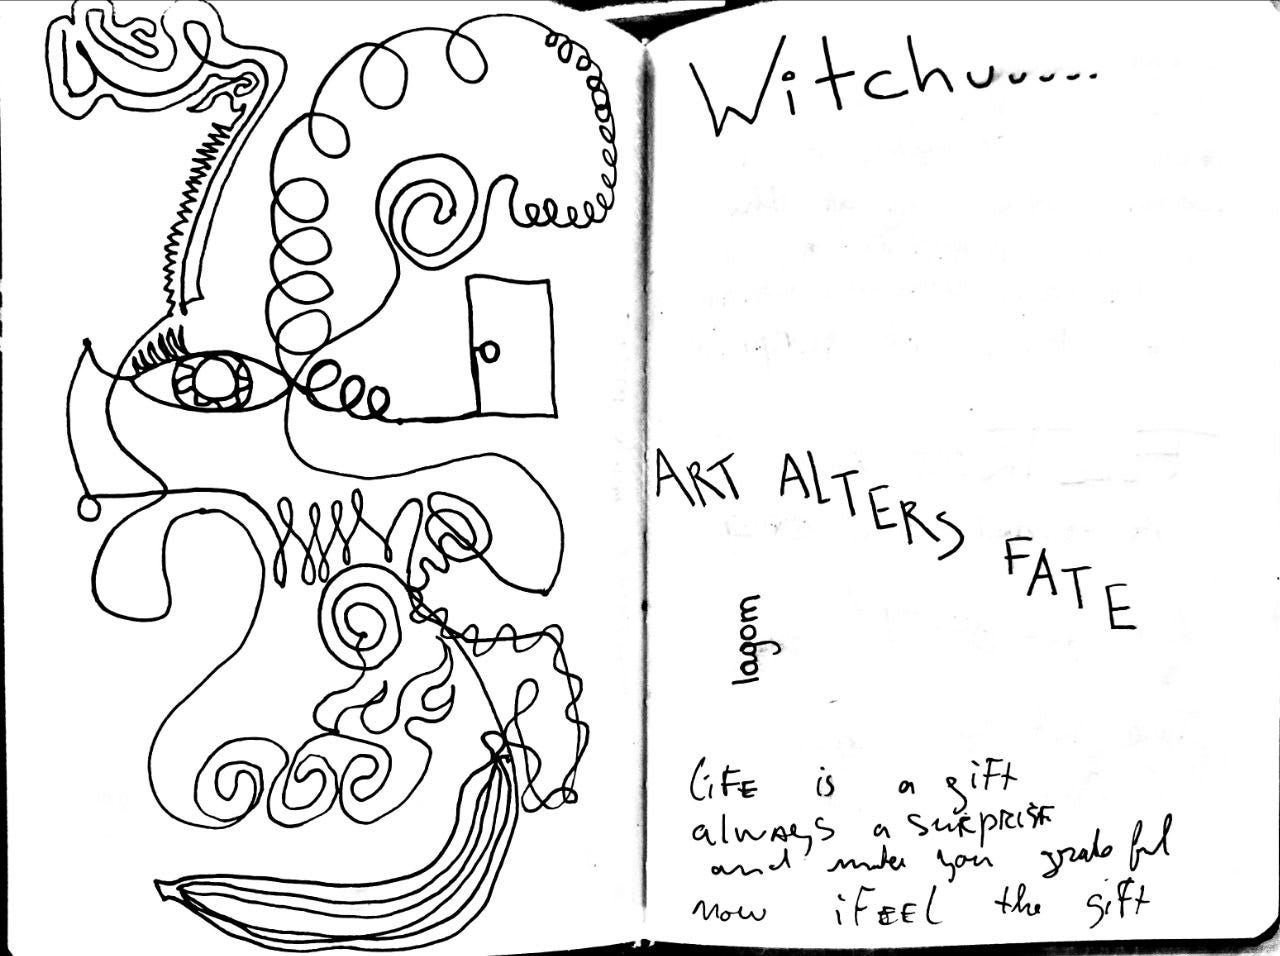 Witchuu....
ART ALTERS FATE
lagom
LiFE is a gift
always a SURPRISE
and make you grateful
now iFEEL the gift